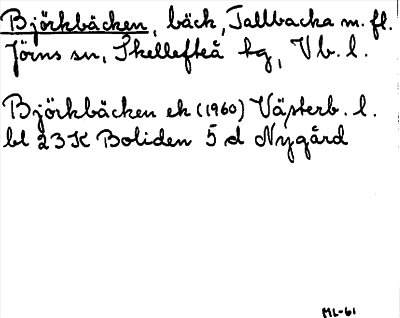 Björkbäcken, bäck, Tallbacka m. fl.
Jörns sn, Skellefteå kg, Vb. l.
Björkbäcken ek (1960) Västerb. l.
bl 23K Boliden 5 d Nygård
ML-61